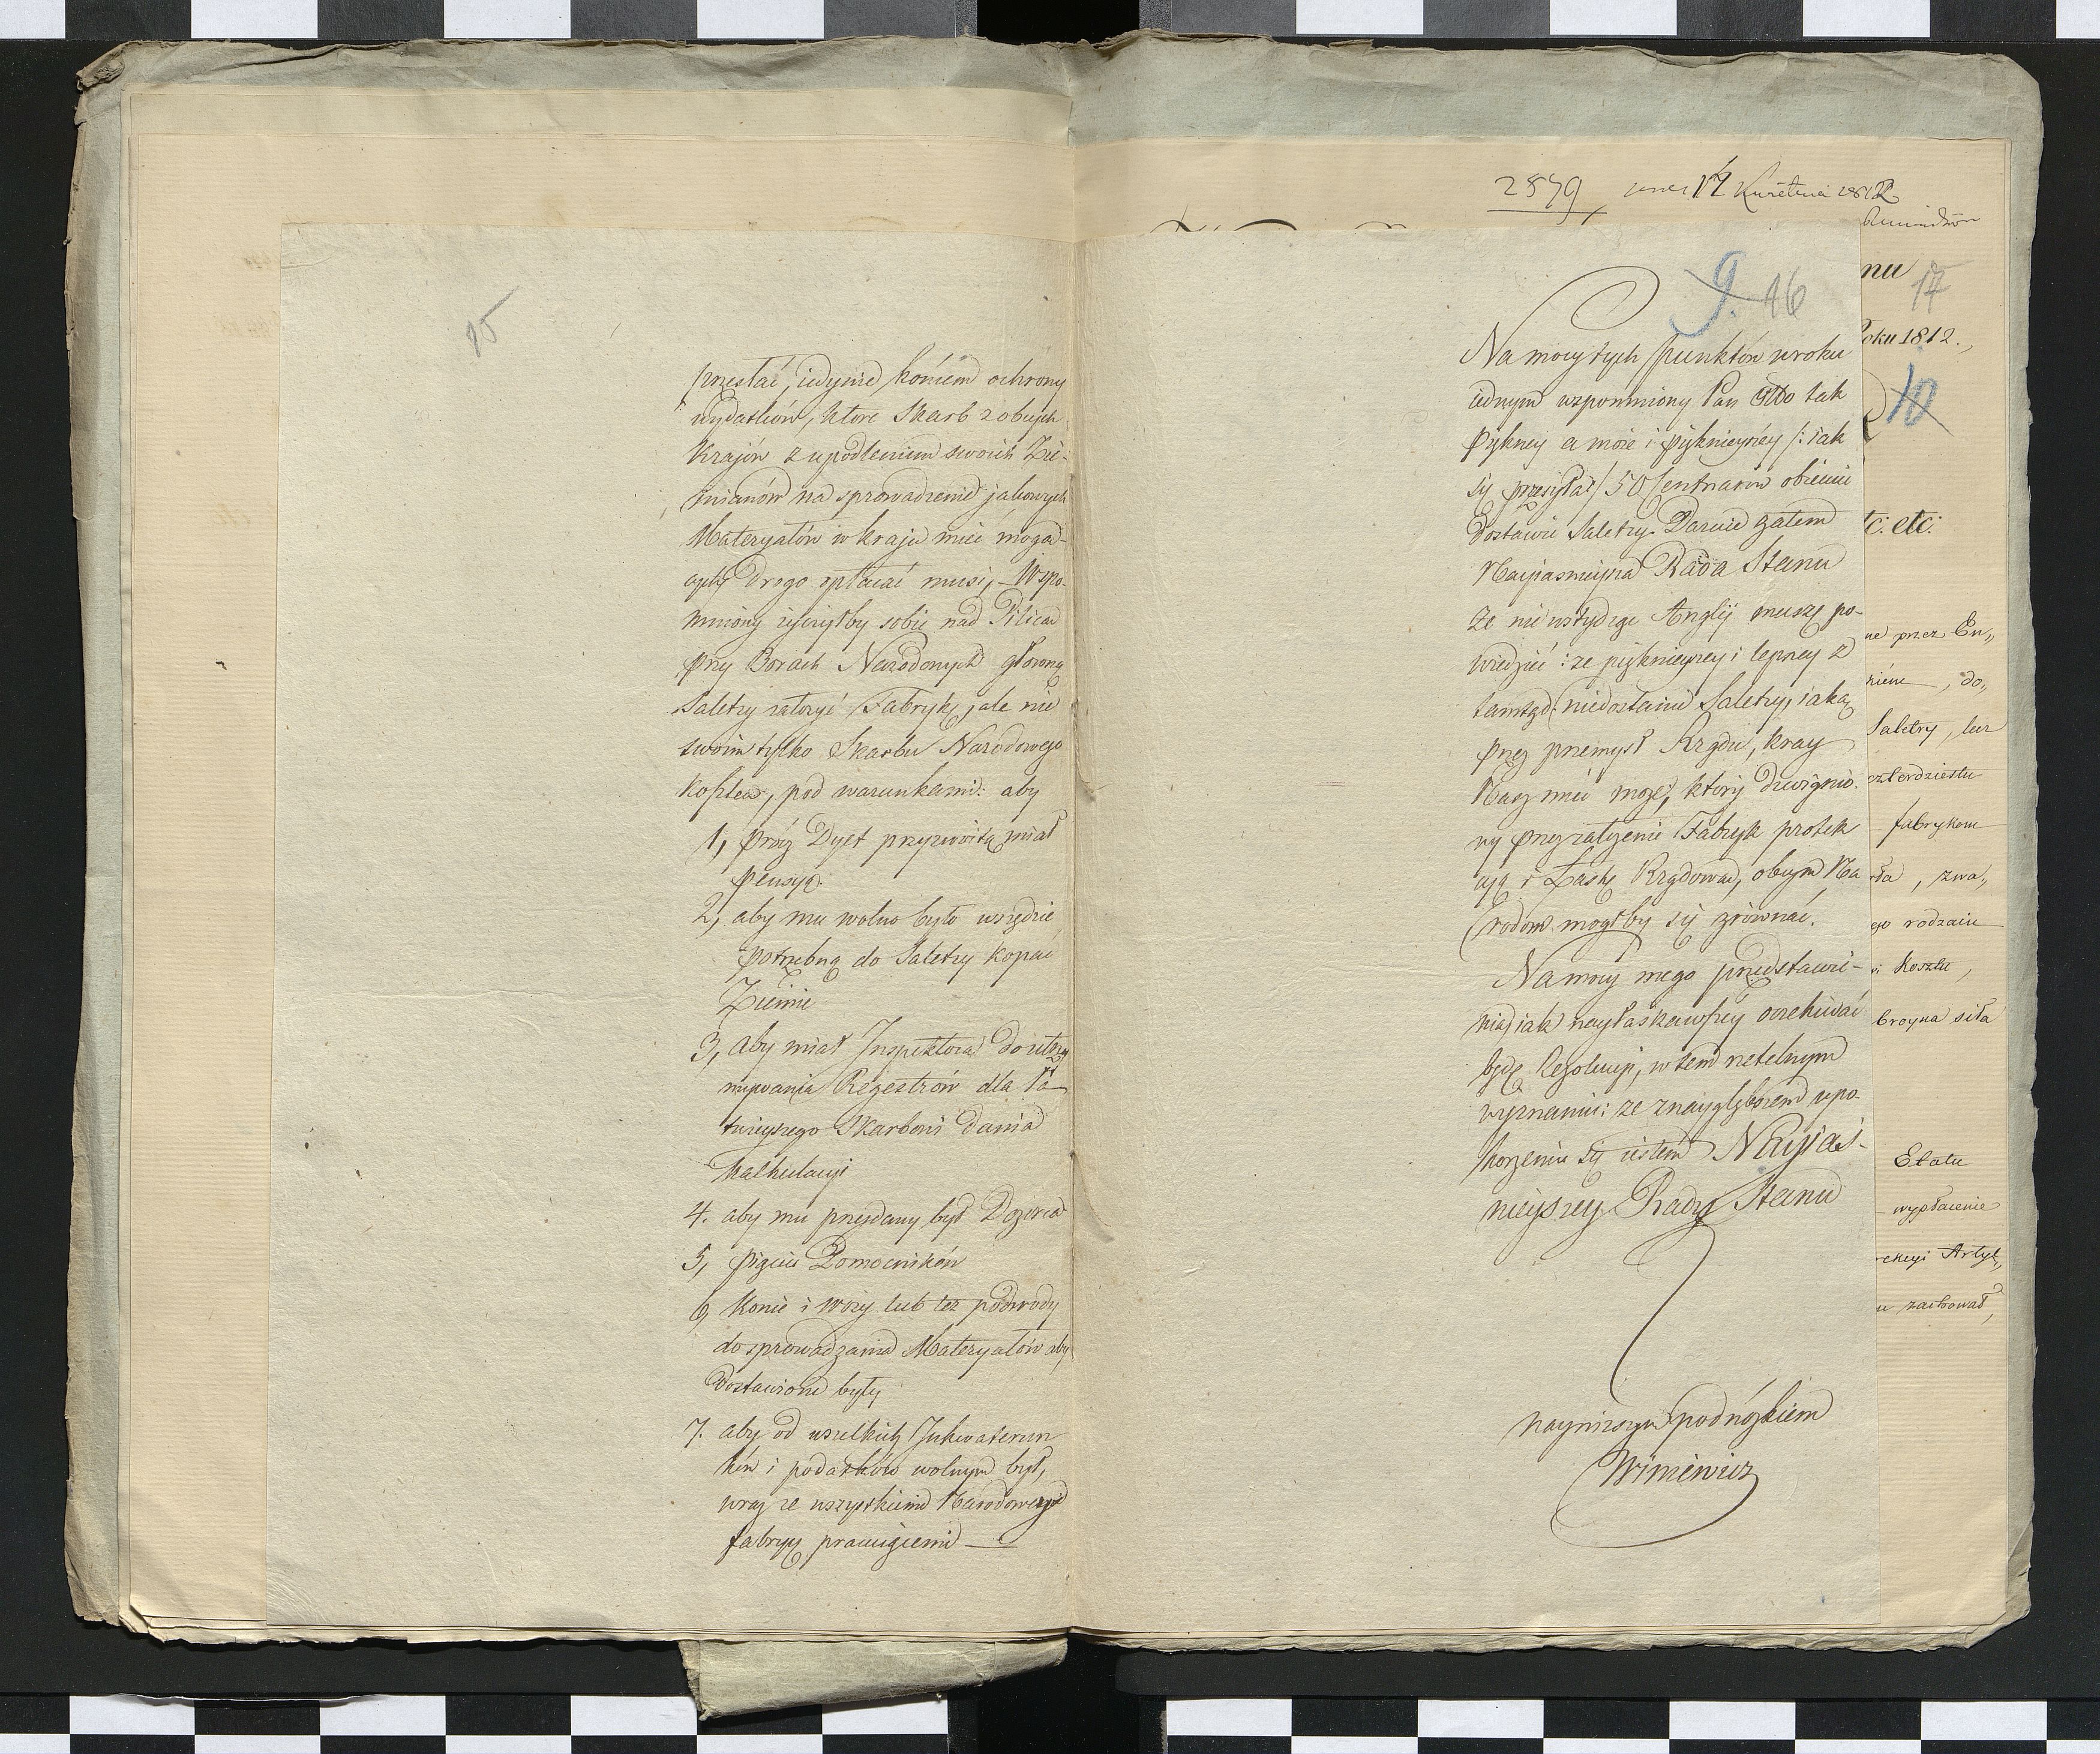 15
przesłać, iedynie końcem ochrony
wydatków, które Skarb z obcych
Krajów z upodleniem swoich Zie-
mianów na sprowadzenie jakowych
Materyałów w kraju mieć mogą-
cych drogo opłacać musi, Wspo-
mniony życzyłby sobie nad Pilicą
przy Borach Narodowych główną
Saletry założyć Fabrykę, ale nie
swoim tylko Skarbu Narodowego
kosztem, pod warunkami: aby
1, prócz Dyet przyzwoitą miał
pensyą.
2, aby mu wolno było wszędzie
potrzebną do Saletry kopać
Ziemie
3, aby miał Inspektora do utrzy
mywania Regestrów dla Ta
tieyszego Skarbowi dania
Kalkulacyi
4. aby mu przydany był Dozorca
5, pięciu Pomocników
6, Konie i wozy lub też podwody
do sprowadzania Materyałów aby
dostawione były
7. aby od wszelkich Inkwaterun
ków i podatków wolnym był,
wraz ze wszystkiemi Narodowey
fabryce pracuiącemi
2579, 17 Kwietnia 1812
9. 16
Na mocy tych punktów w roku
iednym wspomniony Pan tak
pękney a może i pięknieyszey /: iak
się przesyłać / 50 Centnarów obiecuie
dostawić Saletry. Daruie zatem
Nayiaśnieysza Rada Stanu
że nie wstydząc Anglij muszę po-
wiedzieć: że pięknieyszey i lepszey z
tamtąd niedostanie Saletry, iaką
przez przemysł Rządu, kray
Nasz mieć może, który dzwignio-
ny przez założenie Fabryk protek
cyą i Łaskę Rządową, obcym Na
rodom mogłby się zrównać.
Na mocy mego przedstawie-
nia jak nayłaskawszey oczekiwać
będę Rezolucyi, w tem rzetelnym
wyznaniu: że z naygłębszem upo-
korzeniem się iestem Nayjaś-
nieyszey Rady Stanu
nayniższym podnóżkiem
Winiewicz
nu 17
oku 1812.,
10
tc: etc:
ne przez En„
, do„
Saletry, lecz
czterdziestu
fabrykom
, zwa„
go rodzaiu
i Kosztu,
broyna siła
Etatu
wypłacenie
rekcyi Artyl„
zachował,